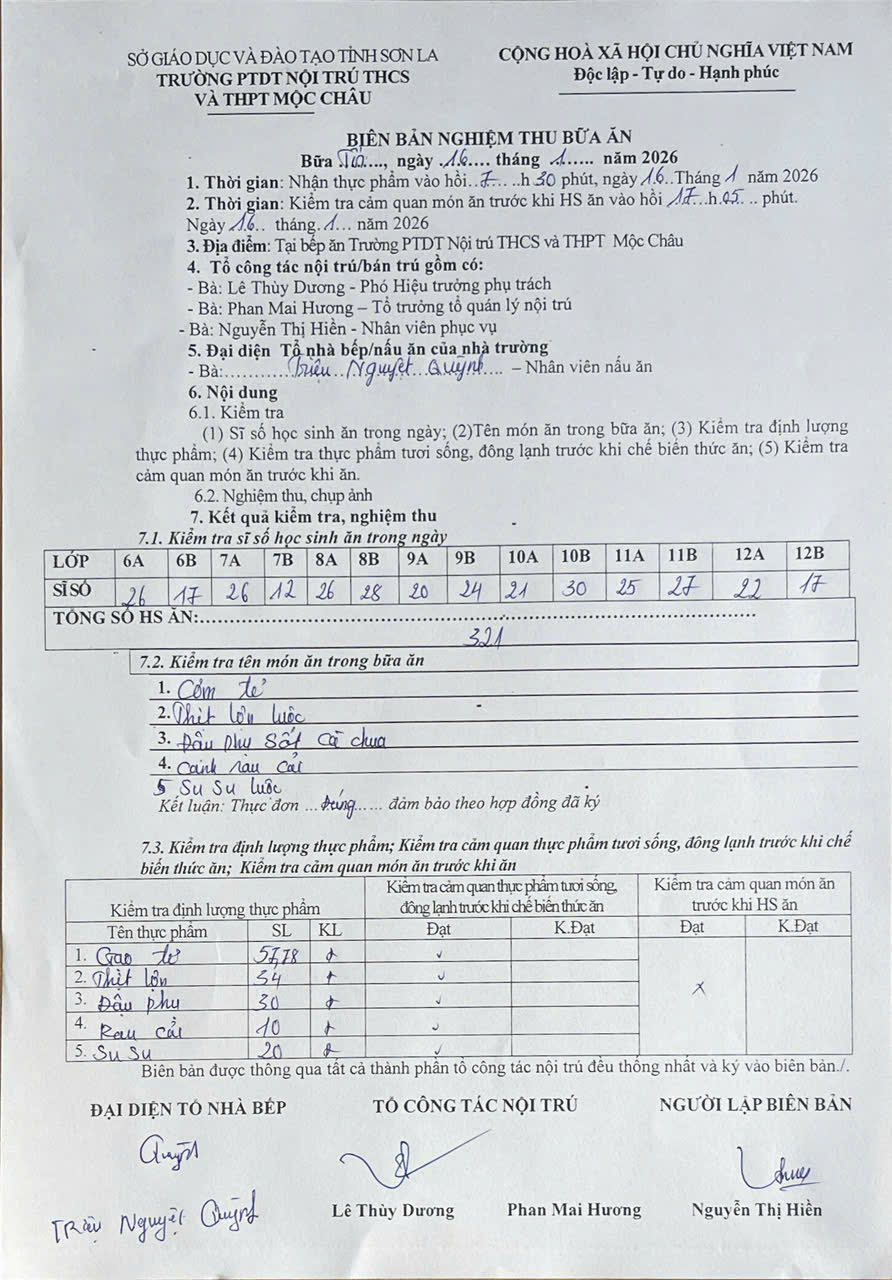 SỞ GIÁO DỤC VÀ ĐÀO TẠO TỈNH SƠN LA
TRƯỜNG PTDT NỘI TRÚ THCS
VÀ THPT MỘC CHÂU
CỘNG HOÀ XÃ HỘI CHỦ NGHĨA VIỆT NAM
Độc lập - Tự do - Hạnh phúc
BIÊN BẢN NGHIỆM THU BỮA ĂN
Bữa Tối..., ngày .16.... tháng .1..... năm 2026
1. Thời gian: Nhận thực phẩm vào hồi..7.... ..h 30 phút, ngày 16..Tháng 1 năm 2026
2. Thời gian: Kiểm tra cảm quan món ăn trước khi HS ăn vào hồi 17...h.05.. .. phút.
Ngày 16.. tháng.1... năm 2026
3. Địa điểm: Tại bếp ăn Trường PTDT Nội trú THCS và THPT Mộc Châu
4. Tổ công tác nội trú/bán trú gồm có:
- Bà: Lê Thùy Dương - Phó Hiệu trưởng phụ trách
- Bà: Phan Mai Hương – Tổ trưởng tổ quản lý nội trú
- Bà: Nguyễn Thị Hiền - Nhân viên phục vụ
5. Đại diện Tổ nhà bếp/nấu ăn của nhà trường
- Bà:...........Triệu..Nguyệt...Quỳnh.... – Nhân viên nấu ăn
6. Nội dung
6.1. Kiểm tra
(1) Sĩ số học sinh ăn trong ngày; (2)Tên món ăn trong bữa ăn; (3) Kiểm tra định lượng
thực phẩm; (4) Kiểm tra thực phẩm tươi sống, đông lạnh trước khi chế biến thức ăn; (5) Kiểm tra
cảm quan món ăn trước khi ăn.
6.2. Nghiệm thu, chụp ảnh
7. Kết quả kiểm tra, nghiệm thu
7.1. Kiểm tra sĩ số học sinh ăn trong ngày
LỚP 6A 6B 7A 7B 8A 8B 9A 9B 10A 10B 11A 11B 12A 12B
SĨ SỐ 26 17 26 12 26 28 20 24 21 30 25 27 22 17
TỔNG SỐ HS ĂN:.......................................................
321
7.2. Kiểm tra tên món ăn trong bữa ăn
1. Cơm tẻ
2. Thịt lợn luộc
3. Đậu phụ sốt cà chua
4. Canh rau cải
5 Su su luộc
Kết luận: Thực đơn ...đúng...... đảm bảo theo hợp đồng đã ký
7.3. Kiểm tra định lượng thực phẩm; Kiểm tra cảm quan thực phẩm tươi sống, đông lạnh trước khi chế
biến thức ăn; Kiểm tra cảm quan món ăn trước khi ăn
Kiểm tra định lượng thực phẩm
Kiểm tra cảm quan thực phẩm tươi sống,
đông lạnh trước khi chế biến thức ăn
Kiểm tra cảm quan món ăn
trước khi HS ăn
Tên thực phẩm SL KL Đạt K.Đạt Đạt K.Đạt
1. Gạo tẻ 57,78 đ ✓
2. Thịt lợn 34 đ ✓
3. Đậu phụ 30 đ ✓ x
4. Rau cải 10 đ ✓
5. Su su 20 đ ✓
Biên bản được thông qua tất cả thành phần tổ công tác nội trú đều thống nhất và ký vào biên bản./.
ĐẠI DIỆN TỔ NHÀ BẾP
TỔ CÔNG TÁC NỘI TRÚ
NGƯỜI LẬP BIÊN BẢN
Quỳnh
Triệu Nguyệt Quỳnh
Lê Thùy Dương
Phan Mai Hương
Nguyễn Thị Hiền